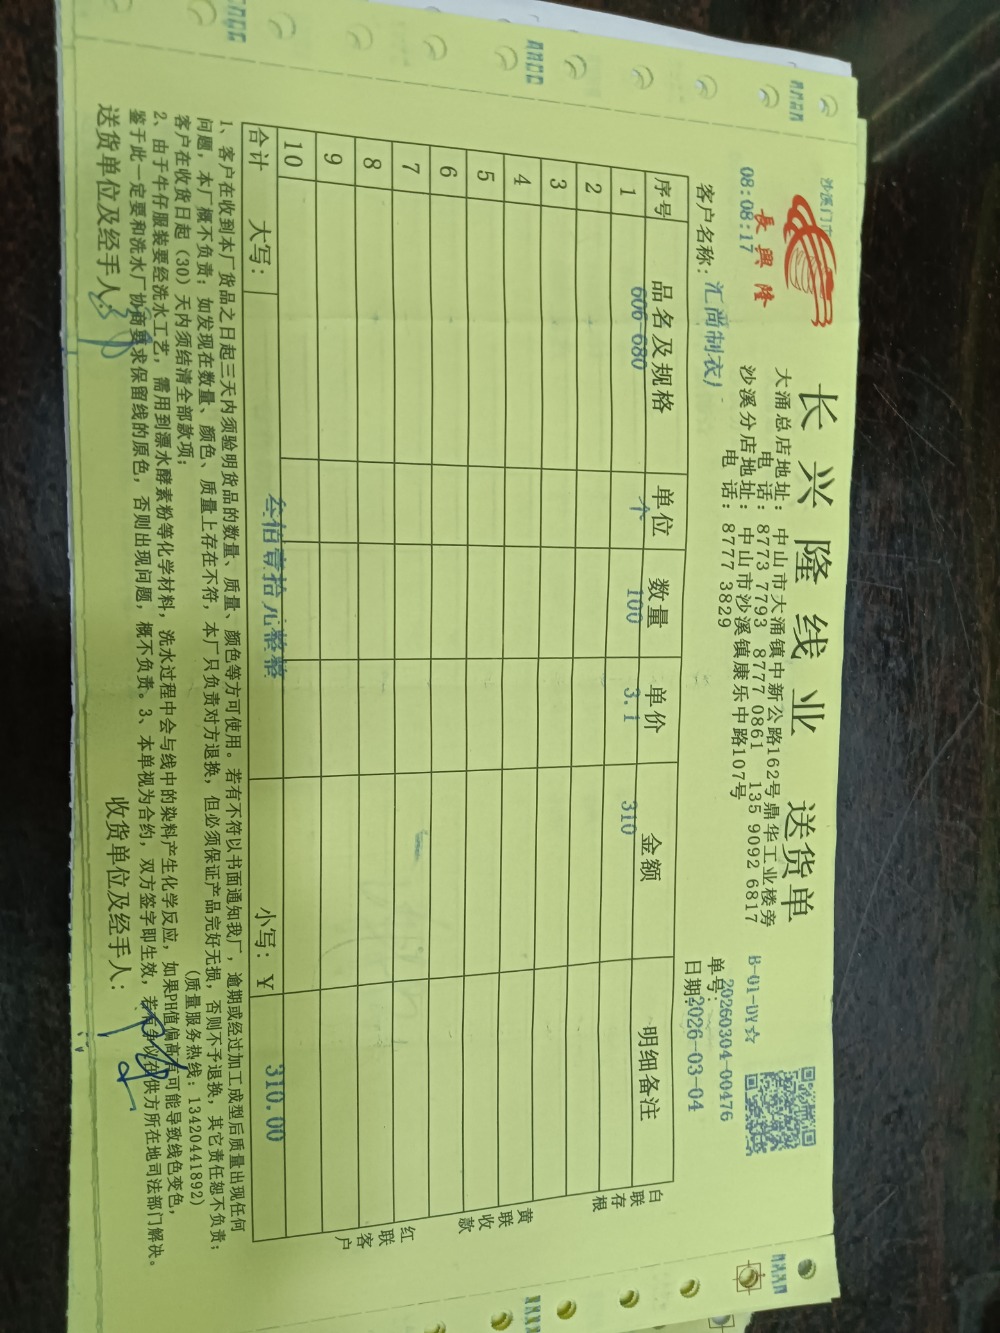 沙溪门市
08:08:17
長興隆
长兴隆线业 送货单
大涌总店地址: 中山市大涌镇中新公路162号鼎华工业楼旁
电 话: 8773 7793 8777 0861 135 9092 6817
沙溪分店地址: 中山市沙溪镇康乐中路107号
电 话: 8777 3829
B-01-DY☆
单号: 20260304-00476
客户名称: 汇尚制衣厂
日期: 2026-03-04
序号 品名及规格 单位 数量 单价 金额 明细备注
1 606-680 个 100 3.1 310
2
3
4
5
6
7
8
9
10
合计 大写: 叁佰壹拾元整整 小写: ¥ 310.00
白联存根
黄联收款
红联客户
1、客户在收到本厂货品之日起三天内须验明货品的数量、质量、颜色等方可使用。若有不符以书面通知我厂,逾期或经过加工成型后质量出现任何
问题,本厂概不负责;如发现在数量、颜色、质量上存在不符,本厂只负责对方退换,但必须保证产品完好无损,否则不予退换,其它责任恕不负责;
客户在收货日起(30)天内须结清全部款项; (质量服务热线:13420441892)
2、由于牛仔服装要经洗水工艺,需用到漂水酵素粉等化学材料,洗水过程中会与线中的染料产生化学反应,如果PH值偏高有可能导致线色变色,
鉴于此一定要和洗水厂协商要求保留线的原色,否则出现问题,概不负责。3、本单视为合约,双方签字即生效,若有争议在供方所在地司法部门解决。
送货单位及经手人: 收货单位及经手人: